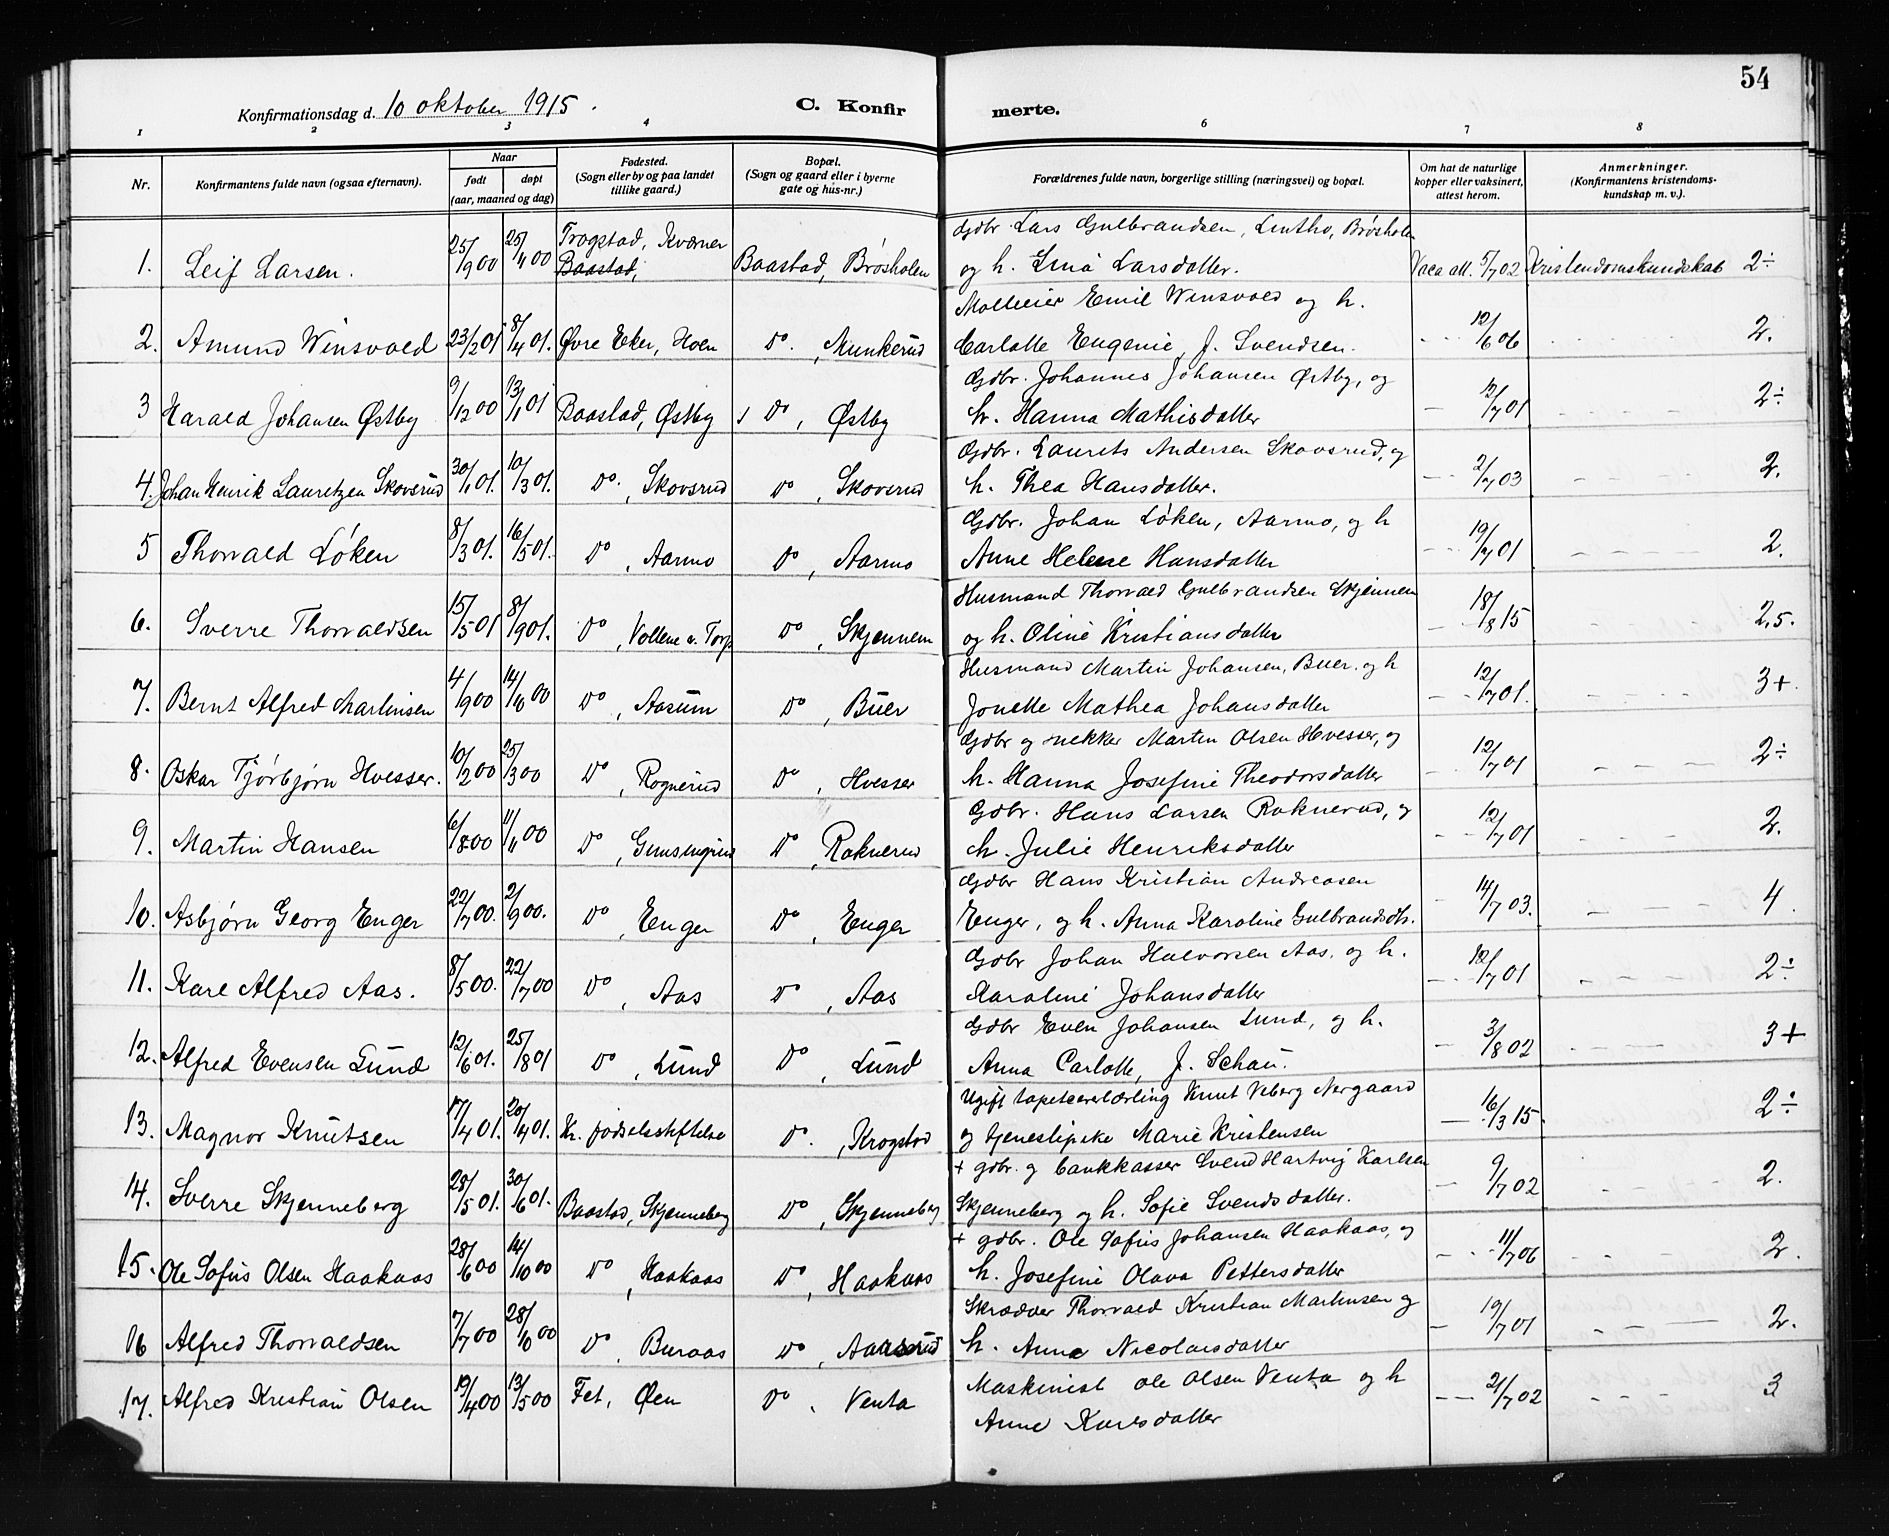 54
Konfirmationsdag d. 10 oktober 1915. C. Konfirmerte.
1 2 3 4 5 6 7 8
Nr. Konfirmantens fulde navn (ogsaa efternavn). Naar født døpt (aar, maaned og dag) Fødested. (Sogn eller by og paa landet tillike gaard.) Bopæl. (Sogn og gaard eller i byerne gate og hus-nr.) Forældrenes fulde navn, borgerlige stilling (næringsvei) og bopæl. Om hat de naturlige kopper eller vaksinert, attest herom. Anmerkninger. (Konfirmantens kristendoms-kundskap m. v.).
1. Leif Larsen. 25/9 00 25/11 00 Trøgstad, Kværner Baastad, Baastad, Brøsholen Gdbr. Lars Gulbrandsen, Brøsholen
og h. Lina Larsdatter. Vacc att. 5/7 02 Kristendomskundskab 2÷
2. Amund Winsvold 23/2 01 8/4 01. Øvre Eker, Hoen Do., Munkerud Emil Winsvold og h.
Carlotte Eugenie, f. Svendsen. 12/6 06 2.
3 Harald Johansen Østby 9/12 00 13/1 01 Baastad, Østby Do, Østby Gdbr. Johannes Johansen Østby, og
h. Hanna Mathisdatter 12/7 01 2÷
4. Johan Henrik Lauritzen Skovsrud 30/1 01. 10/3 01. Do., Skovsrud Do, Skovsrud Gdbr. Laurits Andersen Skovsrud, og
h. Thea Hansdatter. 2/7 03 2.
5 Thorvald Løken 8/3 01. 16/5 01. Do, Aarmo Do, Aarmo Gdbr. Johan Løken, Aarmo, og h
Anne Helene Hansdatter 19/7 01 2.
6. Sverre Thorvaldsen 15/5 01 8/9 01. Do, Vollene v. Torp Do, Skjennem Husmand Thorvald Gulbrandsen Skjennem
og h. Oline Kristiansdatter 18/8 15 2,5.
7. Bernt Alfred Martinsen 4/9 00 14/10 00 Do, Aasum Do, Buer Husmand Martin Johansen, Buer. og h
Jonette Mathea Johansdatter 12/7 01. 3+.
8. Oskar Tjørbjørn Hvesser. 10/2 00 25/3 00 Do, Rognerud Do, Hvesser Gdbr og snekker Martin Olsen Hvesser, og
h. Hanna Josefine Theodorsdatter 12/7 01 2÷
9. Martin Hansen 6/8 00 11/11 00 Do, Do, Raknerud Gdbr. Hans Larsen Raknerud, og
h. Julie Henriksdatter 12/7 01 2.
10. Asbjørn Georg Enger 22/7 00. 2/9 00. Do, Enger Do, Enger Gdbr Hans Kristian Andreasen
Enger, og h. Anna Karoline Gulbrandsdtr. 14/7 03. 4.
11. Kare Alfred Aas. 8/5 00. 22/7 00 Do, Aas Do, Aas Gdbr Johan Halvorsen Aas. og h.
Karoline Johansdatter 12/7 01 2÷
12. Alfred Evensen Lund 12/6 01. 25/8 01 Do, Lund Do, Lund Gdbr Even Johansen Lund, og h.
Anna Carlotte, f. Schau. 3/8 02 3+
13. Magnor Knutsen 17/4 01. 20/4 01. Kr. fødselsstiftelse Do., Krogstad Ugift tapetsererlærling Knut Veberg Nergaard
og tjenestepike Marie Kristensen 16/3 15. 2÷
14. Sverre Skjenneberg 28/5 01. 30/6 01. Baastad, Skjenneberg Do, Skjenneberg + gdbr. og bankkasser Svend Hartvig Karlsen
Skjenneberg og h. Sofie Svendsdatter. 9/7 02 2.
15. Ole Sofus Olsen Haakaas 28/6 00 14/10 00 Do, Haakaas Do, Haakaas + gdbr. Ole Sofus Johansen Haakaas, og
h. Josefine Olava Pettersdatter 11/7 06 2.
16 Alfred Thorvaldsen 7/7 00 28/10 00 Do, Buraas Do, Skrædder Thorvald Kristian Martinsen og
h. Anne Nicolaisdatter 19/7 01 2.
17. Alfred Kristian Olsen 19/4 00 13/5 00 Fet, Øen Do, Venta Maskinist Ole Olsen Venta og h
Anne Karesdatter 21/7 02 3